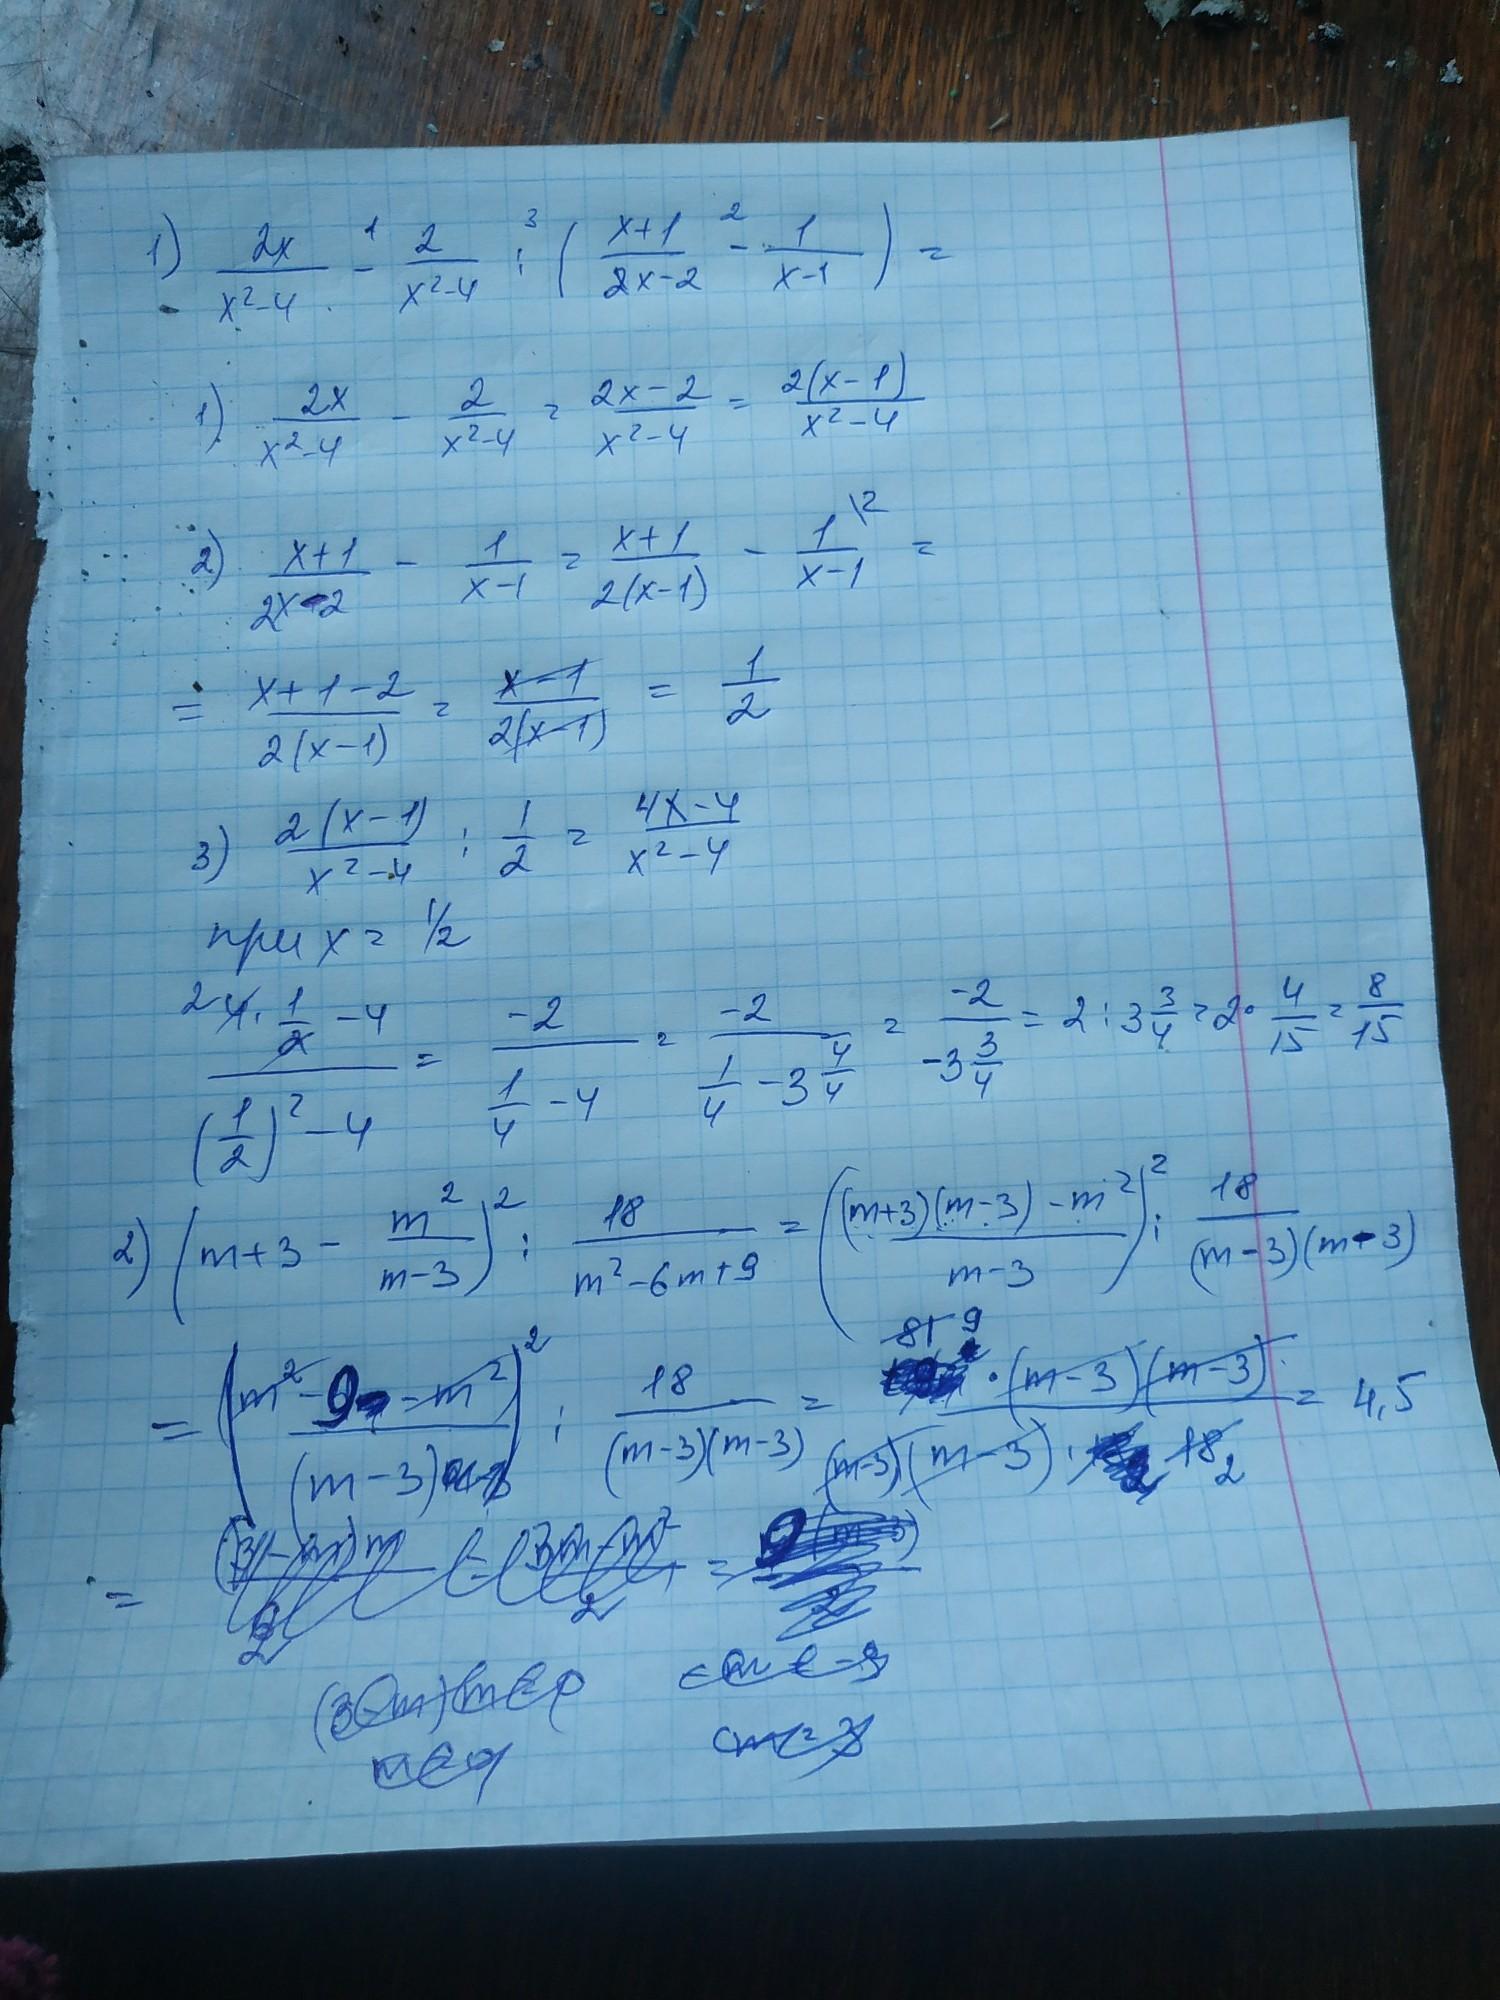 1) 2x/(x²-4) -¹ 2/(x²-4) :³ ((x+1)/(2x-2) -² 1/(x-1)) =
1) 2x/(x²-4) - 2/(x²-4) = (2x-2)/(x²-4) = 2(x-1)/(x²-4)
2) (x+1)/(2x-2) - 1/(x-1) = (x+1)/(2(x-1)) - 1\2/(x-1) =
= (x+1-2)/(2(x-1)) = (x-1)/(2(x-1)) = 1/2
3) 2(x-1)/(x²-4) : 1/2 = (4x-4)/(x²-4)
при x = 1/2
(2 4·1/2 -4)/((1/2)²-4) = -2/(1/4 -4) = -2/(1/4 - 3 4/4) = -2/(-3 3/4) = 2 : 3 3/4 = 2 · 4/15 = 8/15
2) (m+3 - m²/(m-3))² : 18/(m²-6m+9) = (((m+3)(m-3)-m²)/(m-3))² : 18/((m-3)(m-3))
= ((m²-9-m²)/(m-3))² : 18/((m-3)(m-3)) = (81 9 · (m-3)(m-3))/((m-3)(m-3) · 18 2) = 4,5
=